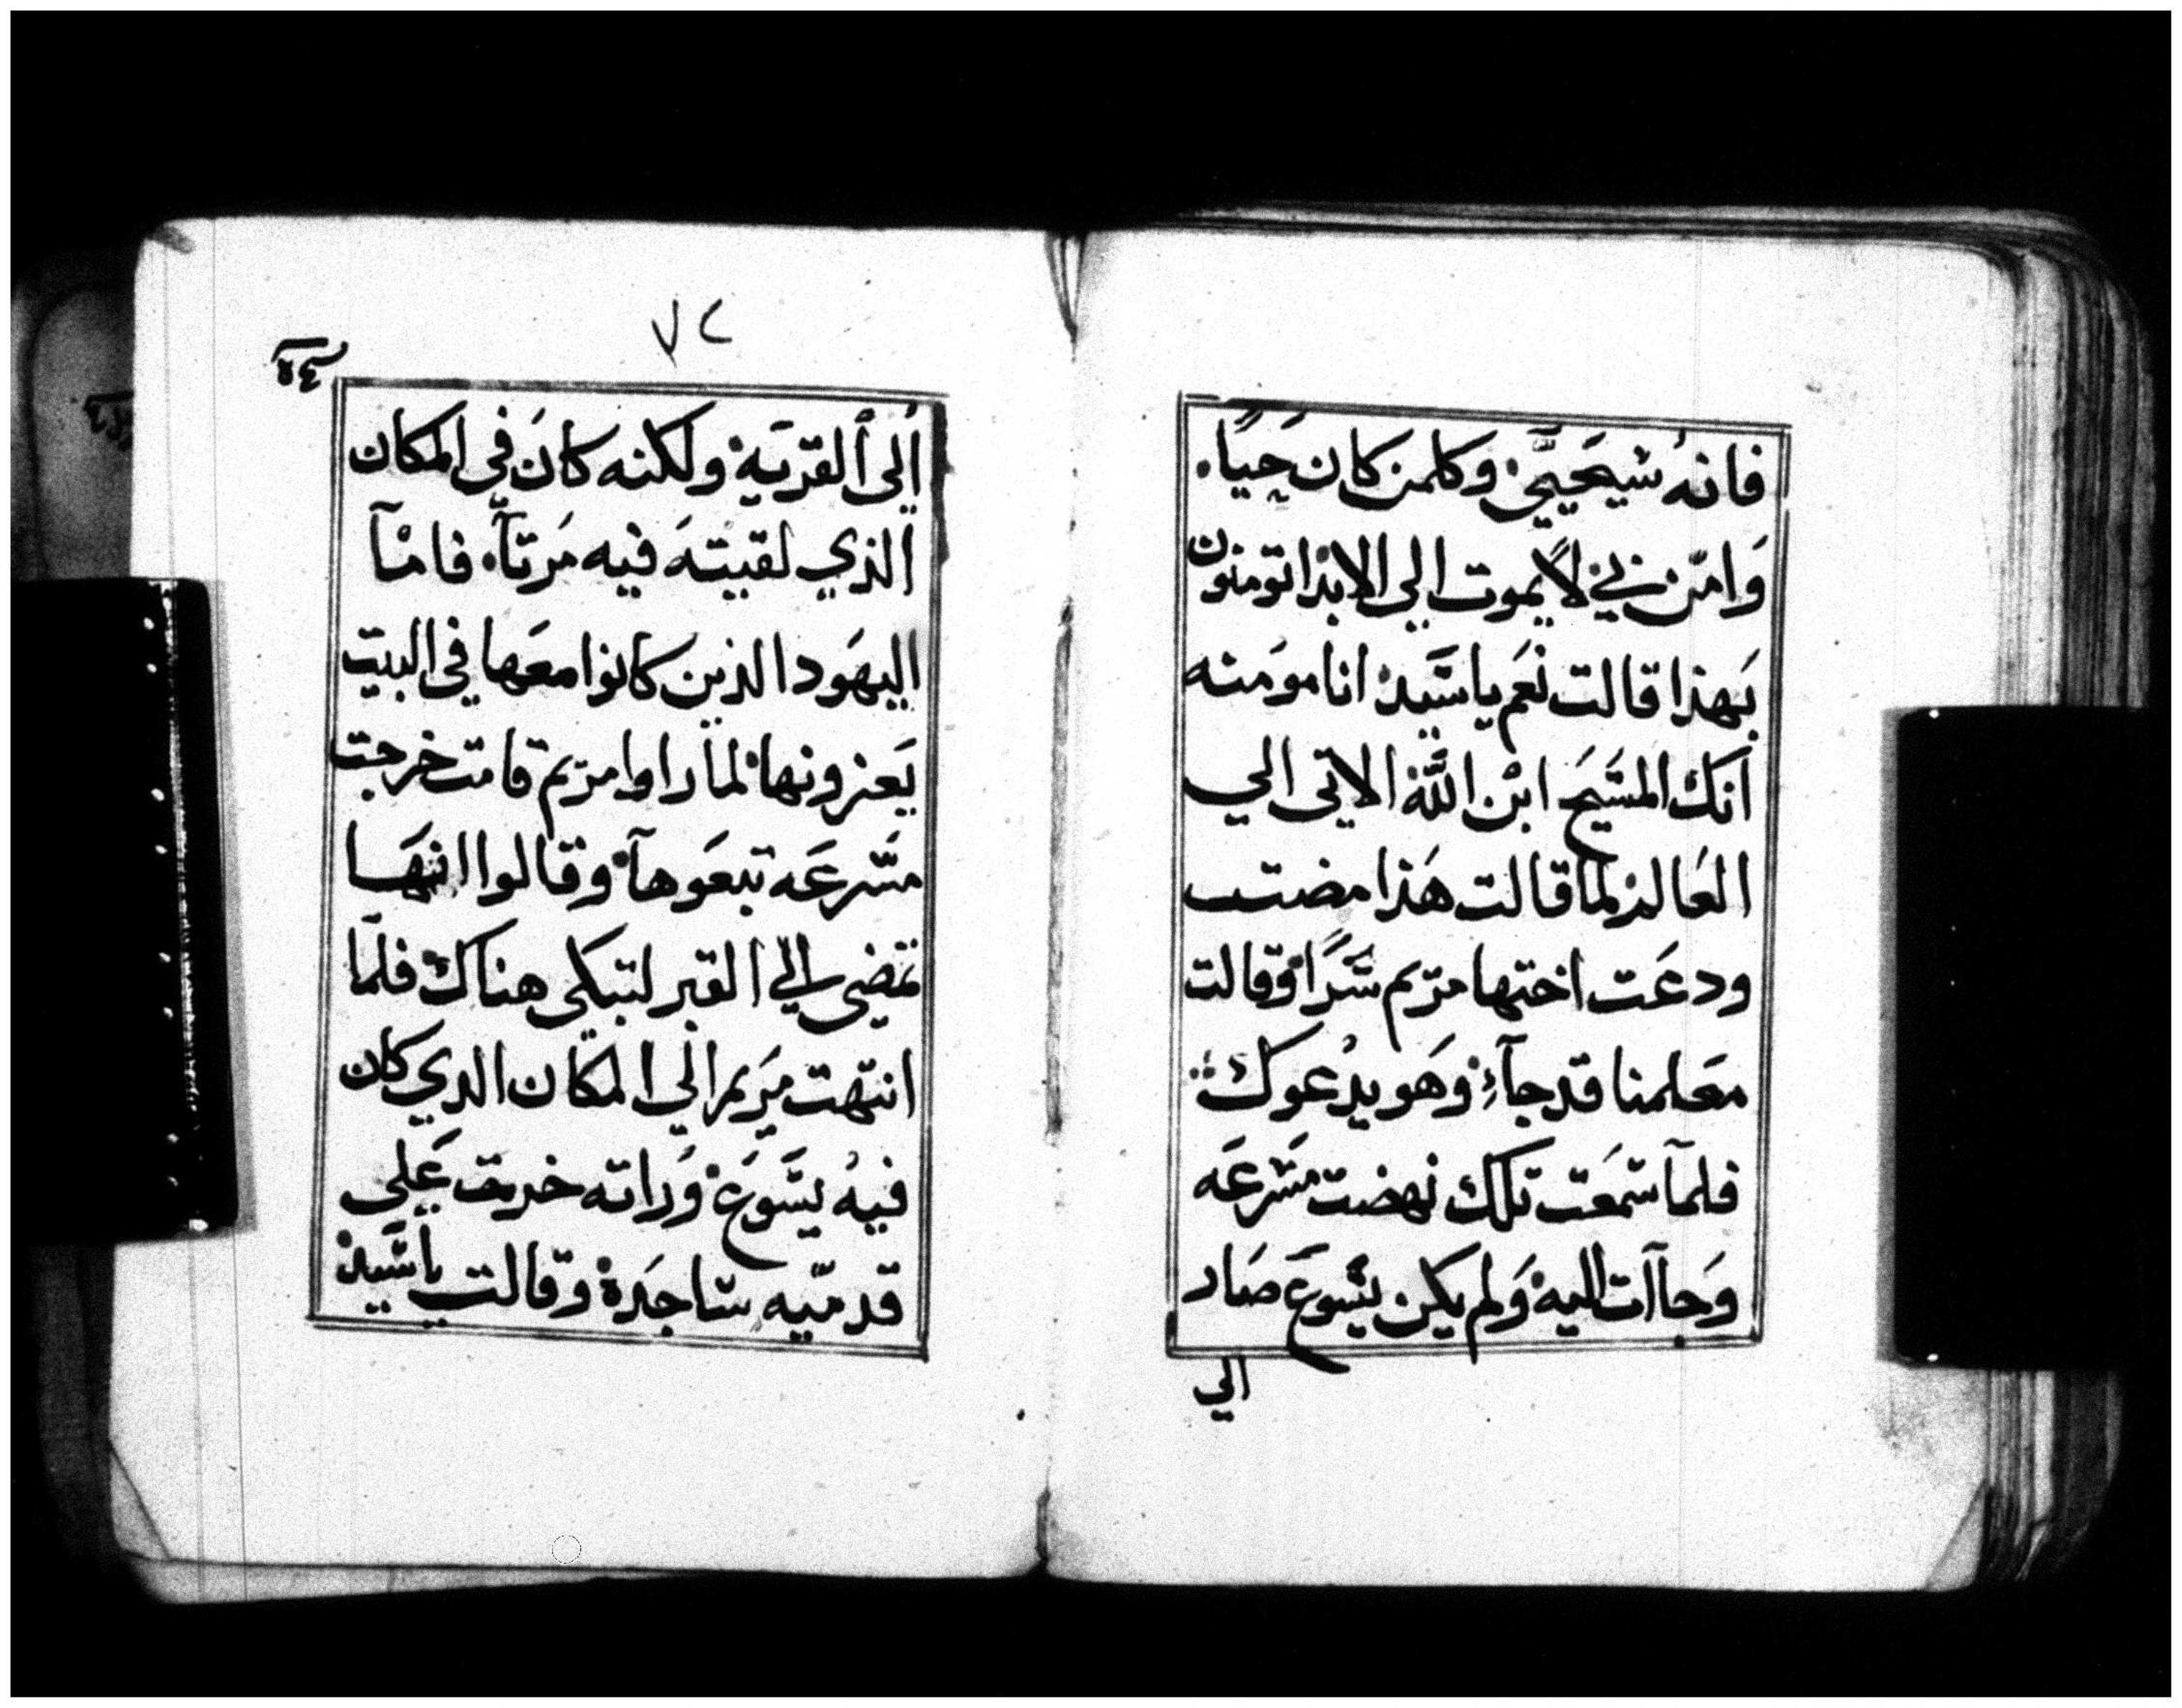 فانهُ سَيحَييَّ وكلمن كان حَيًا.
وَامَن بي لًا يموت الي الابد اتومنون
بَهذا قالت نعَم ياسَّيد انا مومَنه
اَنك المسَيحَ ابْن اللَّه الاتى الي
العَالم لما قالت هَذا مضت
ودعَت اختها مرَيم سًَّرًا وقالت
معَلمنا قد جآءِ وهَو يدْعوك
فلمآ سَمعَت تلك نهضت مسَرعَه
وَجاآت اليه وَلم يكن يسَوعَ صَار
الي
٧٢
إلى ٱلقرَيَة ولكنه كانَ في المكان
الذي لقيتهَ فيه مَرتآ. فامْآ
اليهَود الذين كانوا معَها في البيَت
يَعزونها لما راوا مرَيم قامت خرجت
مسَّرعَه تبعَوهآ وقالوا انهَا
تمضي الي القبر لتبكي هناك فلمَّا
انتهت مرَيم الي المكان الدي كان
فيهُ يسَّوعَ وَراته خرت عَلي
قدميّه سَاجَدة وقالت ياسَّيد